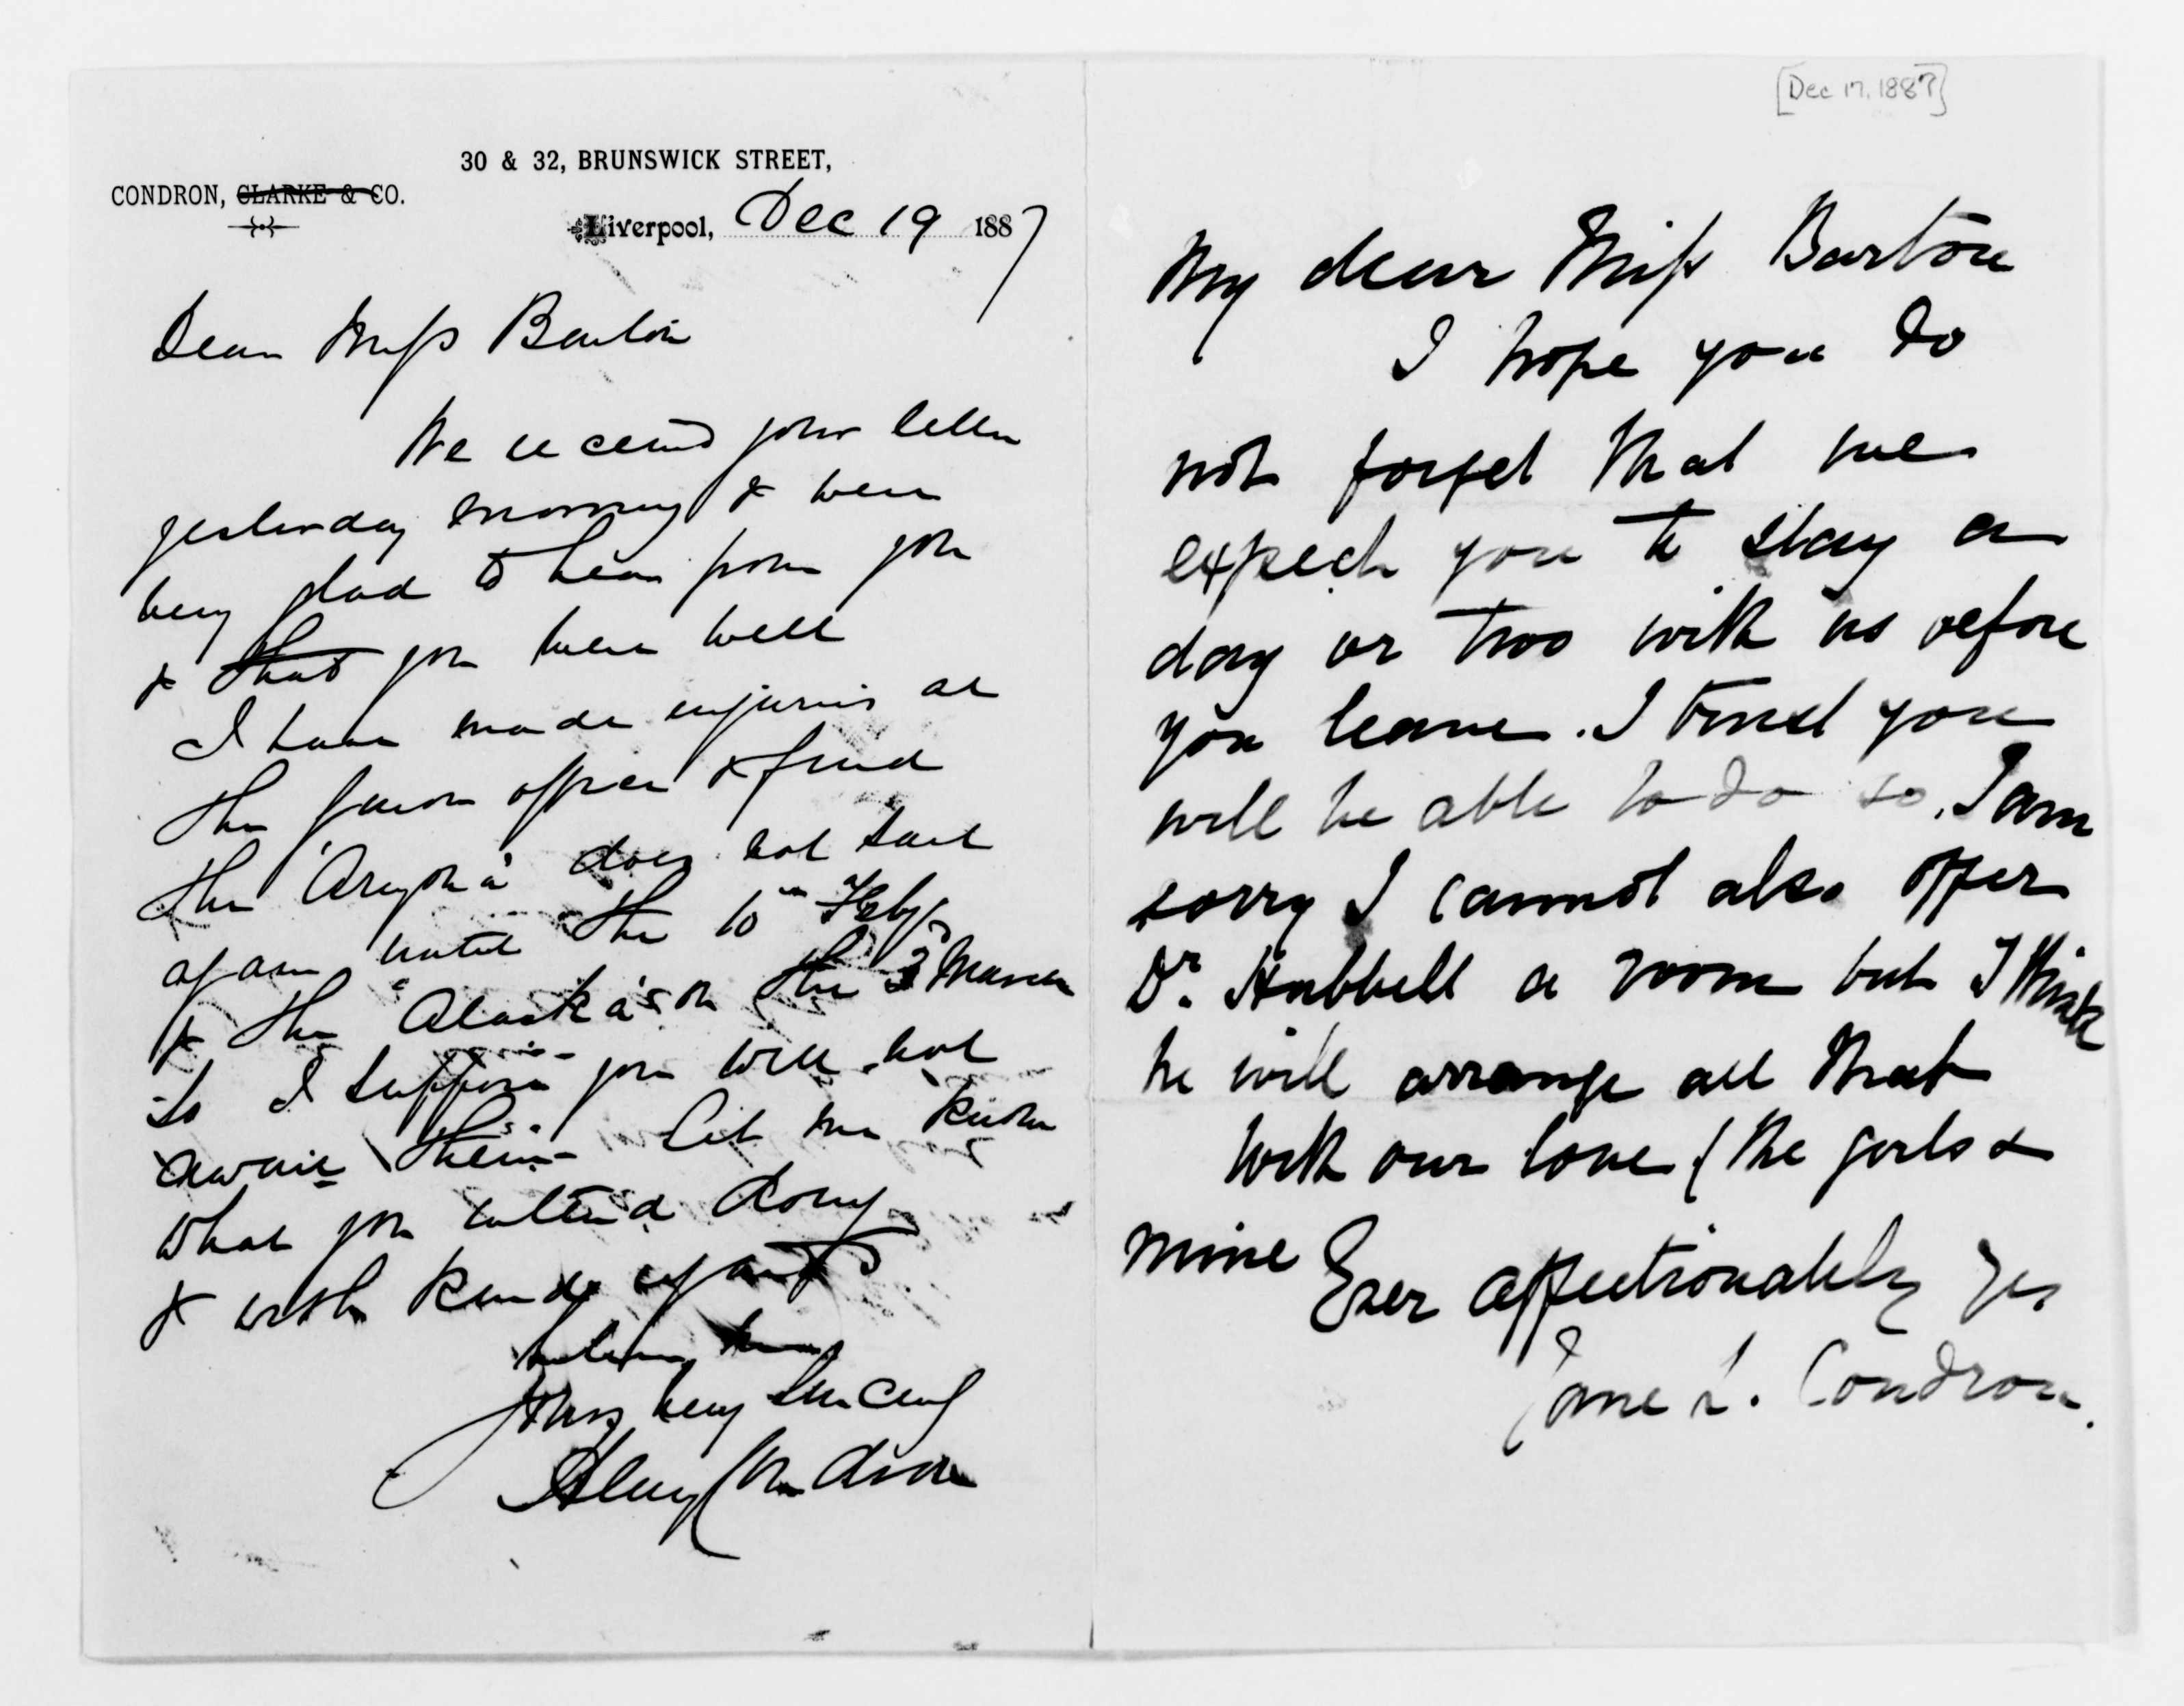 30 & 32, BRUNSWICK STREET,
CONDRON, CLARKE & CO.
Liverpool, Dec 19 1887
Dear Miss Barton
We received your letter
yesterday morning & were
very glad to hear from you
& that you were well
I have made enquiries at
the Guion office & find
the "Arizona" does not sail
again until the 10th Feby
& the "Alaska" on the 3 March
So I suppose you will not
await them - Let me know
what you intend doing
& with kind regards
believe me
Yours very sincerely
Condron
[Dec 17, 1887]
My dear Miss Barton
I hope you do
not forget that we
expect you to stay a
day or two with us before
you leave. I trust you
will be able to do so. I am
sorry I cannot also offer
Dr. Hubbell a room but I think
he will arrange all that
With our love (the girls &
mine
Ever affectionately yrs
Jane L. Condron.